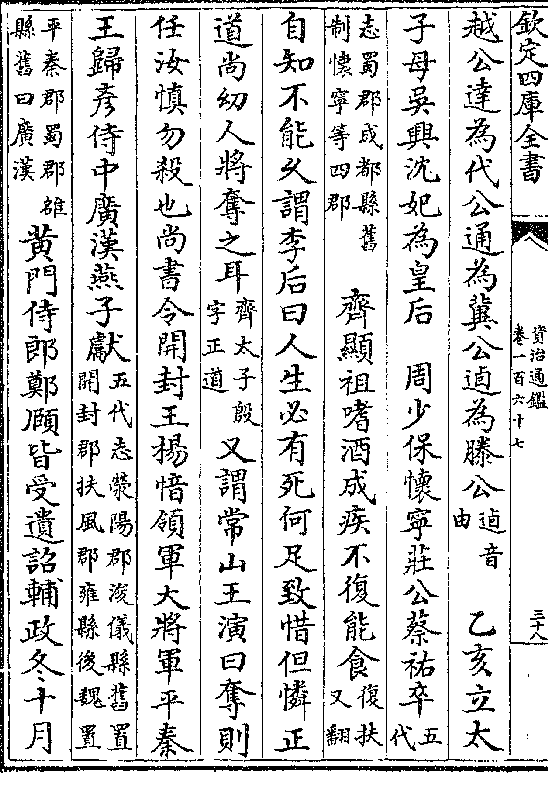 欽定四庫全書
資治通鑑
卷一百六十七
三十八
越公達為代公通為冀公逌為滕公逌音由 乙亥立太
子母吳興沈妃為皇后 周少保懷寧莊公蔡祐卒五代
志蜀郡成都縣舊制懷寧等四郡 齊顯祖嗜酒成疾不復能食復扶又翻
自知不能久謂李后曰人生必有死何足致惜但憐正
道尚幼人將奪之耳齊太子殷字正道又謂常山王演曰奪則
任汝慎勿殺也尚書令開封王楊愔領軍大將軍平秦
王歸彥侍中廣漢燕子獻五代志滎陽郡浚儀縣舊置開封郡扶風郡雍縣後魏置
平秦郡蜀郡雒縣舊曰廣漢黃門侍郎鄭頤皆受遺詔輔政冬十月